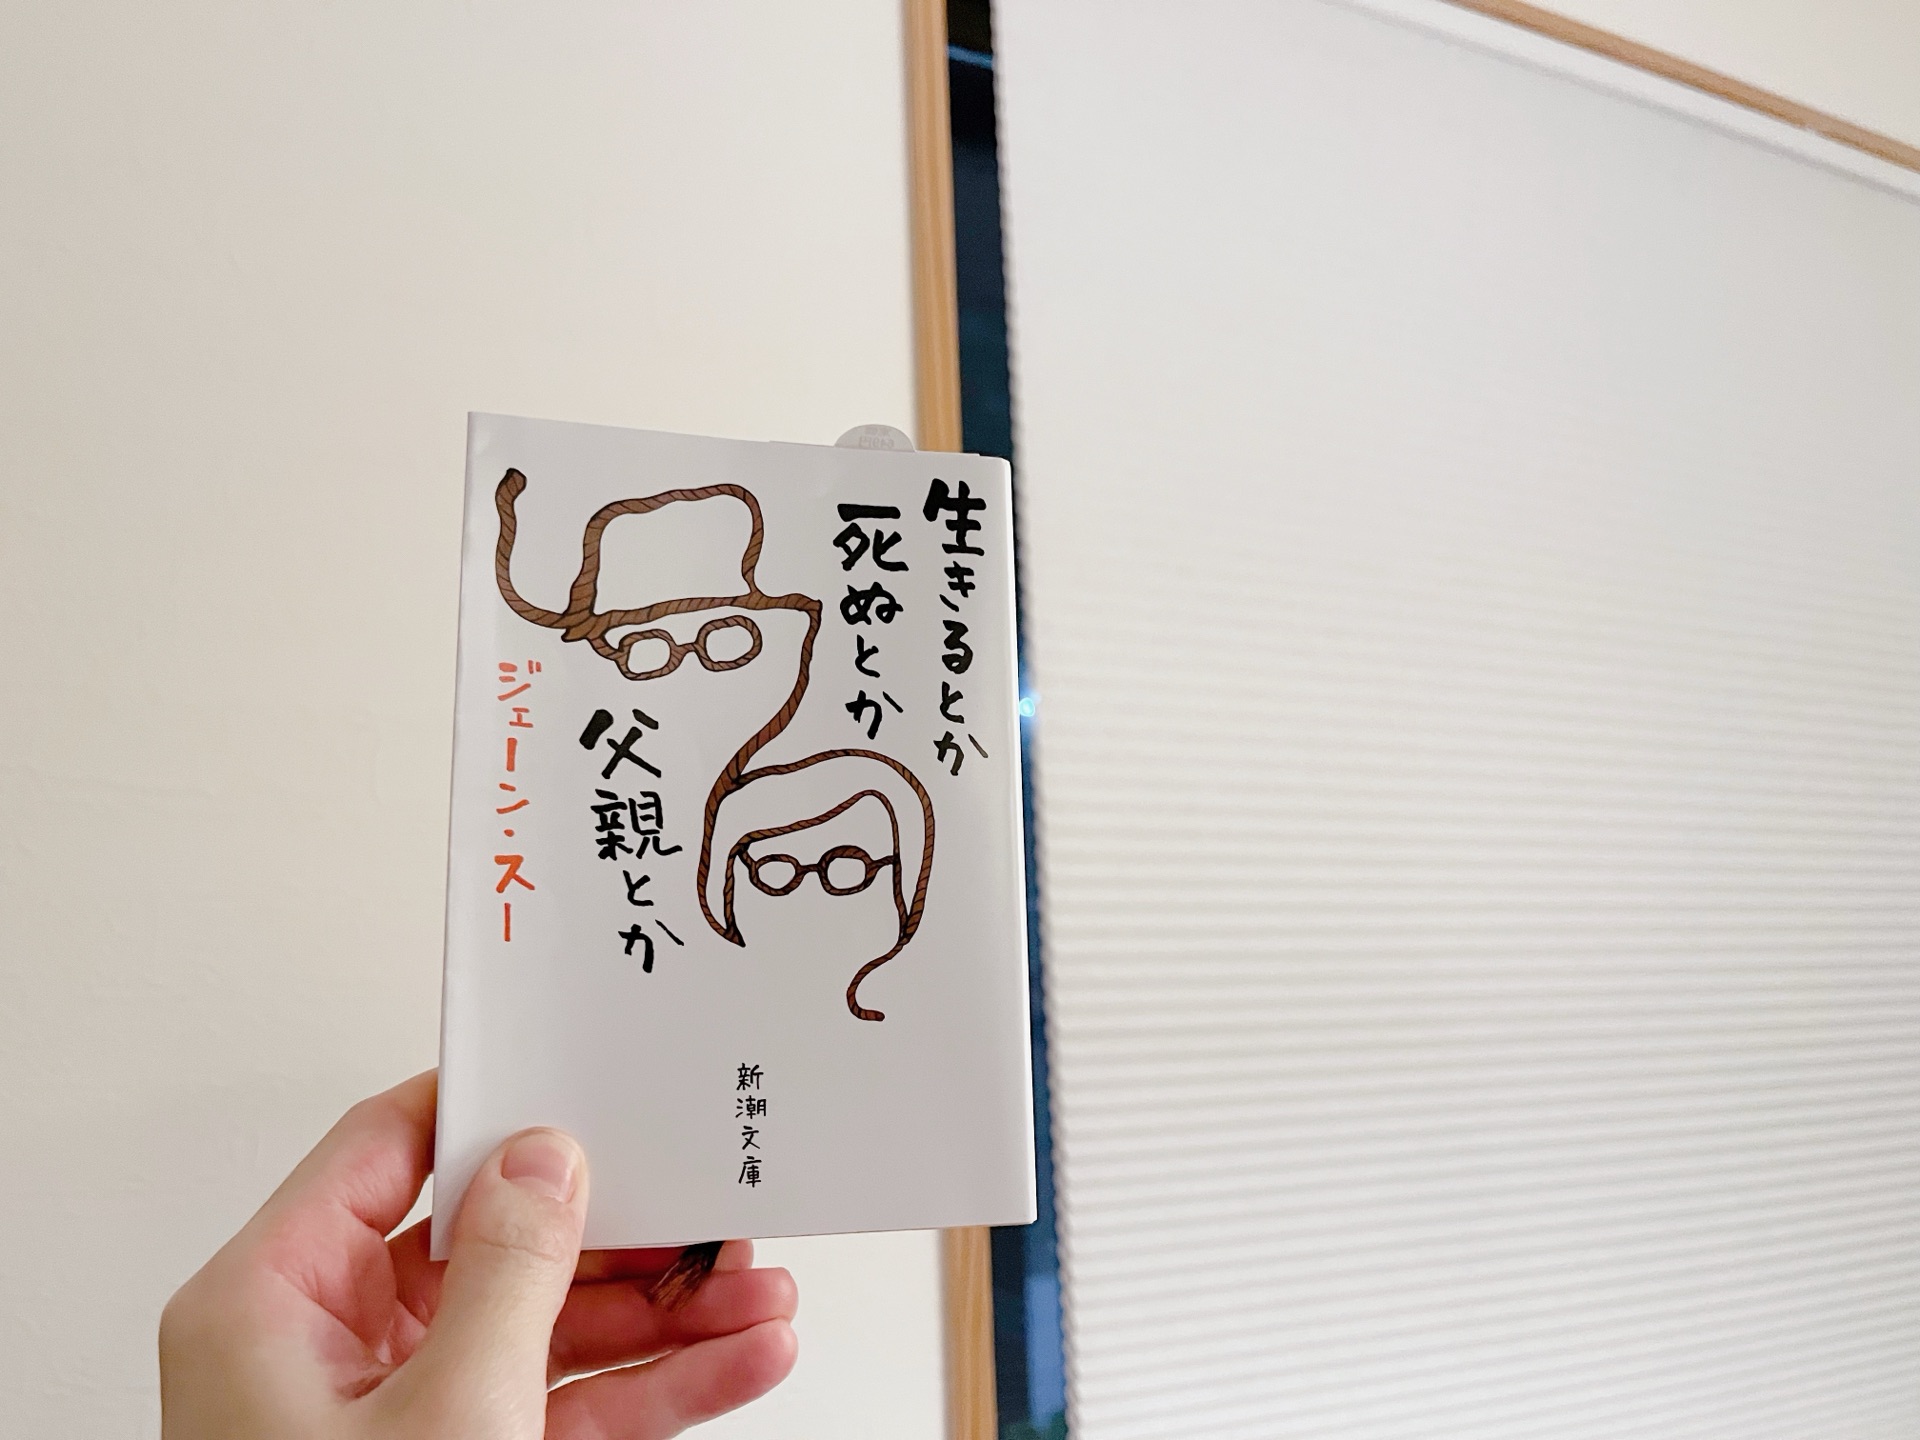 生きるとか
死ぬとか
父親とか
ジェーン・スー
新潮文庫